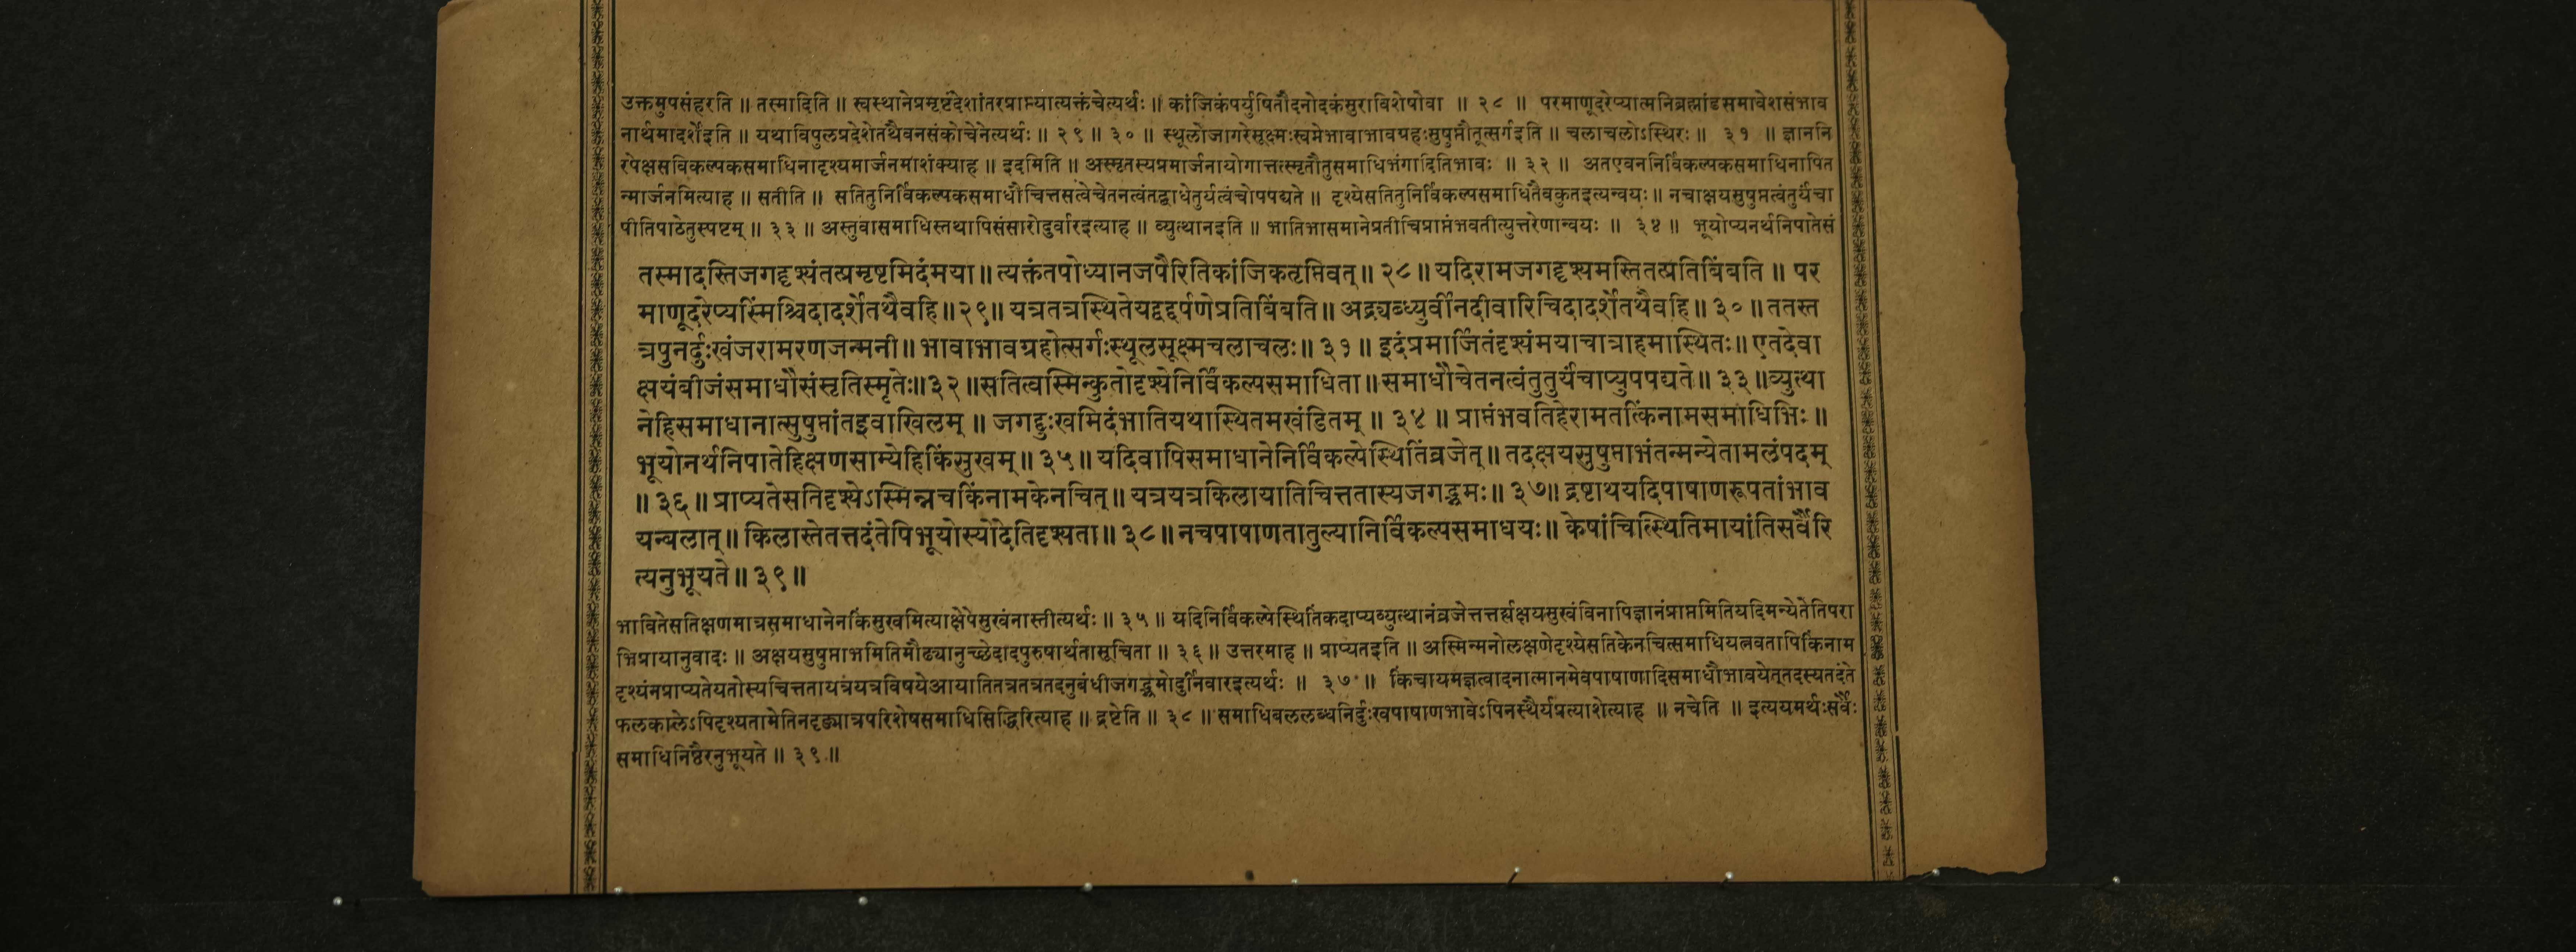 उक्तमुपसंहरति ॥ तस्मादिति ॥ स्वस्थानेप्रमृष्टंदेशांतरप्राप्त्यात्यक्तंचेत्यर्थः ॥ कांजिकंपर्युषितौदनोदकंसुराविशेषोवा ॥ २८ ॥ परमाणूदरेप्यात्मनिब्रह्मांडसमावेशसंभाव
नार्थमादर्शेइति ॥ यथाविपुलप्रदेशेतथैवनसंकोचेनेत्यर्थः ॥ २९ ॥ ३० ॥ स्थूलोजागरेसूक्ष्मःस्वप्नेभावाभावग्रहःसुषुप्तौतूत्सर्गइति ॥ चलाचलोऽस्थिरः ॥ ३१ ॥ ज्ञाननि
रपेक्षसविकल्पकसमाधिनादृश्यमार्जनमाशंक्याह ॥ इदमिति ॥ अस्मृतस्यप्रमार्जनायोगात्तत्स्मृतौतुसमाधिभंगादितिभावः ॥ ३२ ॥ अतएवननिर्विकल्पकसमाधिनापित
न्मार्जनमित्याह ॥ सतीति ॥ सतितुनिर्विकल्पकसमाधौचित्तसत्वेचेतनत्वंतद्बाधेतुर्यत्वंचोपपद्यते ॥ दृश्येसतितुनिर्विकल्पसमाधितैवकुतइत्यन्वयः ॥ नचाक्षयसुषुप्तत्वंतुर्यंचा
पीतिपाठेतुस्पष्टम् ॥ ३३ ॥ अस्तुवासमाधिस्तथापिसंसारोदुर्वारइत्याह ॥ व्युत्थानइति ॥ भातिभासमानेप्रतीचिप्राप्तंभवतीत्युत्तरेणान्वयः ॥ ३४ ॥ भूयोप्यनर्थनिपातेसं
तस्मादस्तिजगद्दृश्यंतत्प्रमृष्टमिदंमया ॥ त्यक्तंतपोध्यानजपैरितिकांजिकतृप्तिवत् ॥ २८ ॥ यदिरामजगद्दृश्यमस्तितत्प्रतिबिंबति ॥ पर
माणूदरेप्यस्मिंश्चिदादर्शेतथैवहि ॥ २९ ॥ यत्रतत्रस्थितेयद्वद्दर्पणेप्रतिबिंबति ॥ अद्र्यब्ध्युर्वीनदीवारिचिदादर्शेतथैवहि ॥ ३० ॥ ततस्त
त्रपुनर्दुःखंजरामरणजन्मनी ॥ भावाभावग्रहोत्सर्गःस्थूलसूक्ष्मचलाचलः ॥ ३१ ॥ इदंप्रमार्जितंदृश्यंमयाचात्राहमास्थितः ॥ एतदेवा
क्षयंबीजंसमाधौसंसृतिस्मृतेः ॥ ३२ ॥ सतित्वस्मिन्कुतोदृश्येनिर्विकल्पसमाधिता ॥ समाधौचेतनत्वंतुतुर्यंचाप्युपपद्यते ॥ ३३ ॥ व्युत्था
नेहिसमाधानात्सुषुप्तांतइवाखिलम् ॥ जगद्दुःखमिदंभातियथास्थितमखंडितम् ॥ ३४ ॥ प्राप्तंभवतिहेरामतत्किंनामसमाधिभिः ॥
भूयोनर्थनिपातेहिक्षणसाम्येहिकिंसुखम् ॥ ३५ ॥ यदिवापिसमाधानेनिर्विकल्पेस्थितिंव्रजेत् ॥ तदक्षयसुषुप्ताभंतन्मन्येतामलंपदम्
॥ ३६ ॥ प्राप्यतेसतिदृश्येऽस्मिन्नचकिंनामकेनचित् ॥ यत्रयत्रकिलायातिचित्ततास्यजगद्भ्रमः ॥ ३७ ॥ द्रष्टाथयदिपाषाणरूपतांभाव
यन्बलात् ॥ किलास्तेतत्तदंतेपिभूयोस्योदेतिदृश्यता ॥ ३८ ॥ नचपाषाणतातुल्यानिर्विकल्पसमाधयः ॥ केषांचित्स्थितिमायांतिसर्वैरि
त्यनुभूयते ॥ ३९ ॥
भावितेसतिक्षणमात्रसमाधानेनकिंसुखमित्याक्षेपेसुखंनास्तीत्यर्थः ॥ ३५ ॥ यदिनिर्विकल्पेस्थितिंकदाप्यव्युत्थानंव्रजेत्तत्तर्ह्यक्षयसुखंविनापिज्ञानंप्राप्तमितियदिमन्येतेतिपरा
भिप्रायानुवादः ॥ अक्षयसुषुप्ताभमितिमौढ्यानुच्छेदादपुरुषार्थतासूचिता ॥ ३६ ॥ उत्तरमाह ॥ प्राप्यतइति ॥ अस्मिन्मनोलक्षणेदृश्येसतिकेनचित्समाधियत्नवतापिकिंनाम
दृश्यंनप्राप्यतेयतोस्यचित्ततायत्रयत्रविषयेआयातितत्रतत्रतदनुबंधीजगद्भ्रमोदुर्निवारइत्यर्थः ॥ ३७ ॥ किंचायमज्ञत्वादनात्मानमेवपाषाणादिसमाधौभावयेत्तदस्यतदंते
फलकालेऽपिदृश्यतामेतिनदृङ्मात्रपरिशेषसमाधिसिद्धिरित्याह ॥ द्रष्टेति ॥ ३८ ॥ समाधिबललब्धनिर्दुःखपाषाणभावेऽपिनस्थैर्यप्रत्याशेत्याह ॥ नचेति ॥ इत्ययमर्थःसर्वैः
समाधिनिष्ठैरनुभूयते ॥ ३९ ॥